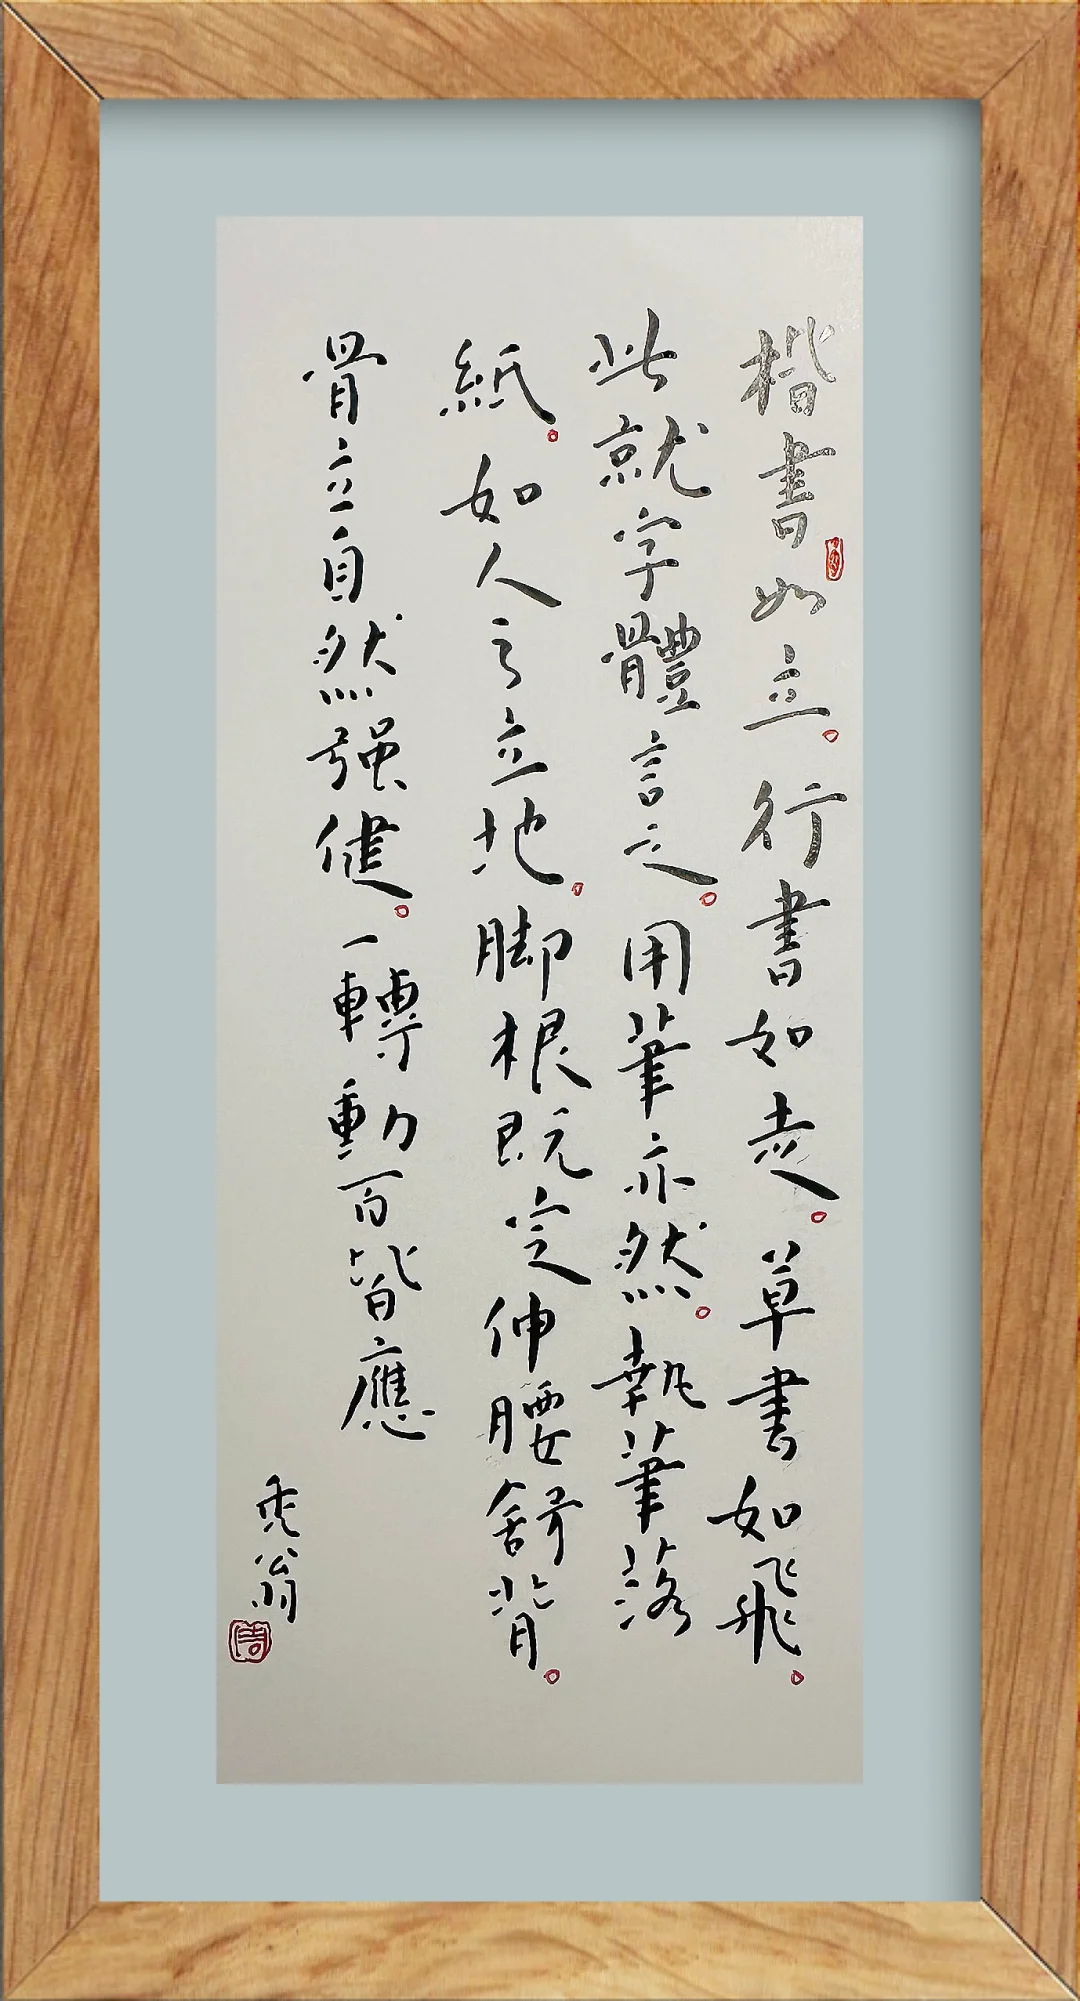 楷書如立。行書如走。草書如飛。
此就字體言之。用筆亦然。執筆落
紙。如人之立地。脚根既定伸腰舒背。
骨立自然强健。一轉動百皆應
禿翁